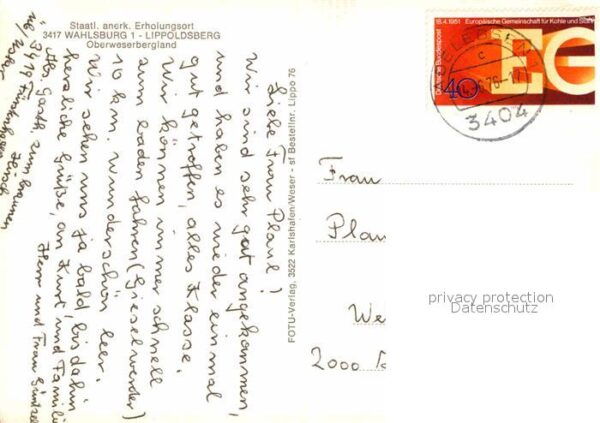 Staatl. anerk. Erholungsort
3417 WAHLSBURG 1 - LIPPOLDSBERG
Oberweserbergland
Liebe Frau Plaue!
Wir sind sehr gut angekommen,
und haben es wieder ein mal
gut getroffen, alles Klasse.
Wir können immer schnell
zum baden fahren (Gieselwerder)
10 km. wunderschön leer.
Wir sehen uns ja bald, bis dahin
herzliche Grüße, an Kurt und Familie
Herr und Frau
3419
Gasth. zum braunen
Hirsch
FOTU-Verlag, 3522 Karlshafen/Weser - sf Bestellnr. Lippo 76
18.4.1951 Europäische Gemeinschaft für Kohle und
Deutsche Bundespost
40
EG
c
76-17
3404
Frau
Plau
We
2000
privacy protection
Datenschutz